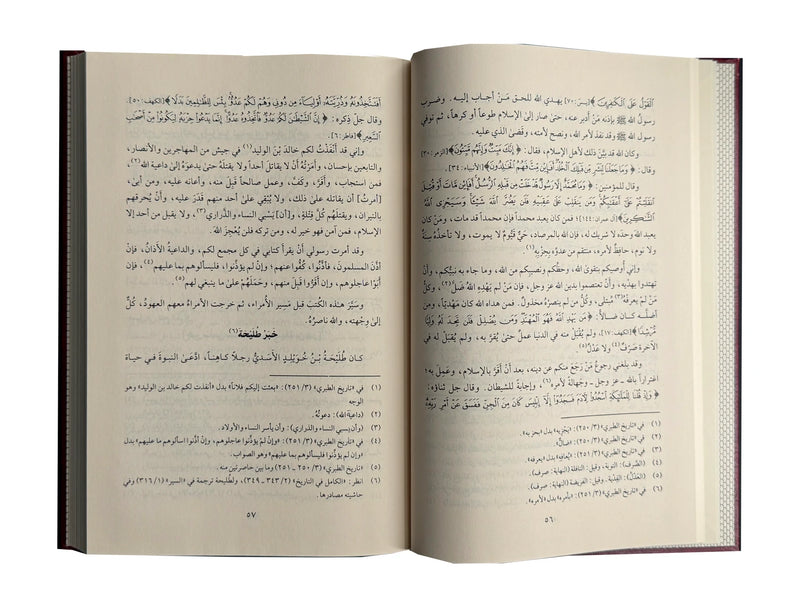 ٱلْقَوْلُ عَلَى ٱلْكَٰفِرِينَ﴾[يس: ٧٠] يهدي الله للحق مَنْ أجاب إليه. وضرب
رسولُ الله ﷺ بإذنه مَنْ أدبر عنه، حتى صار إلى الإسلام طوعاً أو كرهاً، ثم توفي
رسولَ الله ﷺ وقد نفذ لأمر الله، ونصح لأمته، وقضىٰ الذي عليه.
وكان الله قد بيَّنَ ذلك لأهل الإسلام، فقال: ﴿إِنَّكَ مَيِّتٌ وَإِنَّهُم مَّيِّتُونَ﴾[الزمر: ٣٠]
وقال: ﴿وَمَا جَعَلْنَا لِبَشَرٍ مِّن قَبْلِكَ ٱلْخُلْدَ أَفَإِيْن مِّتَّ فَهُمُ ٱلْخَٰلِدُونَ﴾[الأنبياء: ٣٤].
وقال للمؤمنين: ﴿وَمَا مُحَمَّدٌ إِلَّا رَسُولٌ قَدْ خَلَتْ مِن قَبْلِهِ ٱلرُّسُلُ أَفَإِيْن مَّاتَ أَوْ قُتِلَ
ٱنقَلَبْتُمْ عَلَىٰٓ أَعْقَٰبِكُمْ وَمَن يَنقَلِبْ عَلَىٰ عَقِبَيْهِ فَلَن يَضُرَّ ٱللَّهَ شَيْـًٔا وَسَيَجْزِى ٱللَّهُ
ٱلشَّٰكِرِينَ﴾[آل عمران: ١٤٤] فمن كان يعبد محمداً فإن محمداً قد مات، ومَنْ كان
يعبد الله وحدَه لا شريك له، فإن الله له بالمرصاد، حيٌّ قَيُّومٌ لا يموت، ولا تأخذُه سِنَةٌ
ولا نوم، حافظٌ لأمره، منتقم من عدوِّه بجزْيِهِ(١).
وإني أُوصيكم بتقوىٰ الله، وحظِّكم ونصيبكم من الله، وما جاء به نبيُّكم، وأن
تهتدوا بهديه، وأنْ تعتصموا بدين الله عز وجل، فإن مَنْ لم يَهْدِهِ اللهُ ضَلَّ(٢)، وكلُّ
مَنْ لم يعرفْهُ(٣) مُبتلى، وكل من لم يَنْصُرْه مخذول. فمن هداه الله كان مَهْدِيّاً، ومن
أضلَّه كان ضالاً: ﴿مَن يَهْدِ ٱللَّهُ فَهُوَ ٱلْمُهْتَدِ وَمَن يُضْلِلْ فَلَن تَجِدَ لَهُ وَلِيًّا
مُّرْشِدًا﴾[الكهف: ١٧]. ولم يُقبَل منه في الدنيا عملٌ حتىٰ يقرَّ به، ولم يُقْبَل له في
الآخرة صَرْفٌ(٤) ولا عَدْلٌ(٥).
وقد بلغني رجوعُ مَنْ رجع منكم عن دينه، بعد أنْ أقَرَّ بالإسلام، وعَمِل به؛
اغتراراً بالله ـ عز وجل ـ وجَهالةً لأمره(٦)، وإجابةً للشيطان. وقال جل ثناؤه:
﴿وَإِذْ قُلْنَا لِلْمَلَٰٓئِكَةِ ٱسْجُدُوا۟ لِـَٔادَمَ فَسَجَدُوٓا۟ إِلَّآ إِبْلِيسَ كَانَ مِنَ ٱلْجِنِّ فَفَسَقَ عَنْ أَمْرِ رَبِّهِۦٓ
(١) في «تاريخ الطبري» (٢٥١/٣): «يجزيه» بدل «بجزيه».
(٢) في «تاريخ الطبري» (٢٥١/٣): «ضالٌّ».
(٣) في «تاريخ الطبري» (٢٥١/٣): «يُعافِهِ» بدل «يعرفه».
(٤) (الصَّرْف): التوبة، وقيل: النافلة (النهاية: صرف).
(٥) (العَدْلُ): الفِدْية. وقيل: الفريضة (النهاية: صرف).
(٦) في «تاريخ الطبري» (٢٥١/٣): «بأمره» بدل «لأمره».
٥٦
أَفَتَتَّخِذُونَهُۥ وَذُرِّيَّتَهُۥٓ أَوْلِيَآءَ مِن دُونِى وَهُمْ لَكُمْ عَدُوٌّۢ بِئْسَ لِلظَّٰلِمِينَ بَدَلًا﴾[الكهف: ٥٠].
وقال جلّ ذِكره: ﴿إِنَّ ٱلشَّيْطَٰنَ لَكُمْ عَدُوٌّ فَٱتَّخِذُوهُ عَدُوًّا إِنَّمَا يَدْعُوا۟ حِزْبَهُۥ لِيَكُونُوا۟ مِنْ أَصْحَٰبِ
ٱلسَّعِيرِ﴾[فاطر: ٦].
وإني قد أنفذْتُ لكم خالدَ بنَ الوليد(١) في جيش من المهاجرين والأنصار،
والتابعين بإحسان، وأمَرْتُهُ أنْ لا يقاتلَ أحداً ولا يقتلَه حتىٰ يدعوَهُ إلىٰ داعية الله(٢)،
فمن استجابَ، وأقَرَّ، وكَفَّ، وعمل صالحاً قَبِلَ منه، وأعانه عليه، ومن أبىٰ،
[أمرتُ] أن يقاتلَه علىٰ ذلك، ولا يُبْقِي علىٰ أحد منهم قَدَر عليه، وأنْ يُحرقهم
بالنيران، ويقتلهم كُلَّ قِتْلَةٍ، و[أن] يَسْبي النساء والذَّراري(٣)، ولا يقبل من أحد إلا
الإسلام، فمن آمن فهو خير له، ومن تركه فلن يُعْجِزَ الله.
وقد أمرت رسولي أنْ يقرأ كتابي في كل مجمع لكم، والداعيةُ الأذانُ، فإنْ
أذَّنَ المسلمون، فأذَّنُوا، كُفُّوا عنهم؛ وإنْ لم يؤذِّنوا، فليسألوهم بما عليهم(٤)، فإن
أبَوْا عاجلوهم، وإن أقَرُّوا قُبِلَ منهم، وحَمَلَهُمْ علىٰ ما ينبغي لهم(٥).
وسيَّرَ هذه الكُتبَ قبل مَسِير الأمراء، ثم خرجت الأمراءُ معهم العهودُ، كُلٌّ
إلىٰ وِجْهته، والله ناصرُهُ.
خَبَرُ طُلَيْحَةَ(٦)
كان طُلَيْحَةُ بْنُ خُوَيْلِدٍ الأَسَدِيُّ رجلاً كاهِناً، ادَّعىٰ النبوةَ في حياة
(١) في «تاريخ الطبري» (٢٥١/٣): «بعثت إليكم فلاناً» بدل «أنفذت لكم خالد بن الوليد» وهو
الوجه
(٢) (داعية الله): دعوتُهُ.
(٣) (وأن يسبي النساء والذراري): وأن يأسر النساء والأولاد.
(٤) في «تاريخ الطبري» (٢٥١/٣): «وإن لمْ يؤذِّنوا عاجلوهم، وإن أذَّنوا اسألوهم ما عليهم» بدل
«وإن لم يؤذنوا فليسألوهم بما عليهم» وهو الصواب.
(٥) «تاريخ الطبري» (٢٥٠/٣ ـ ٢٥١) وما بين حاصرتين منه.
(٦) انظر: «الكامل في التاريخ» (٣٤٣/٢ ـ ٣٤٩)، ولطليحة ترجمة في «السير» (٣١٦/١) وفي
حاشيته مصادرها.
٥٧